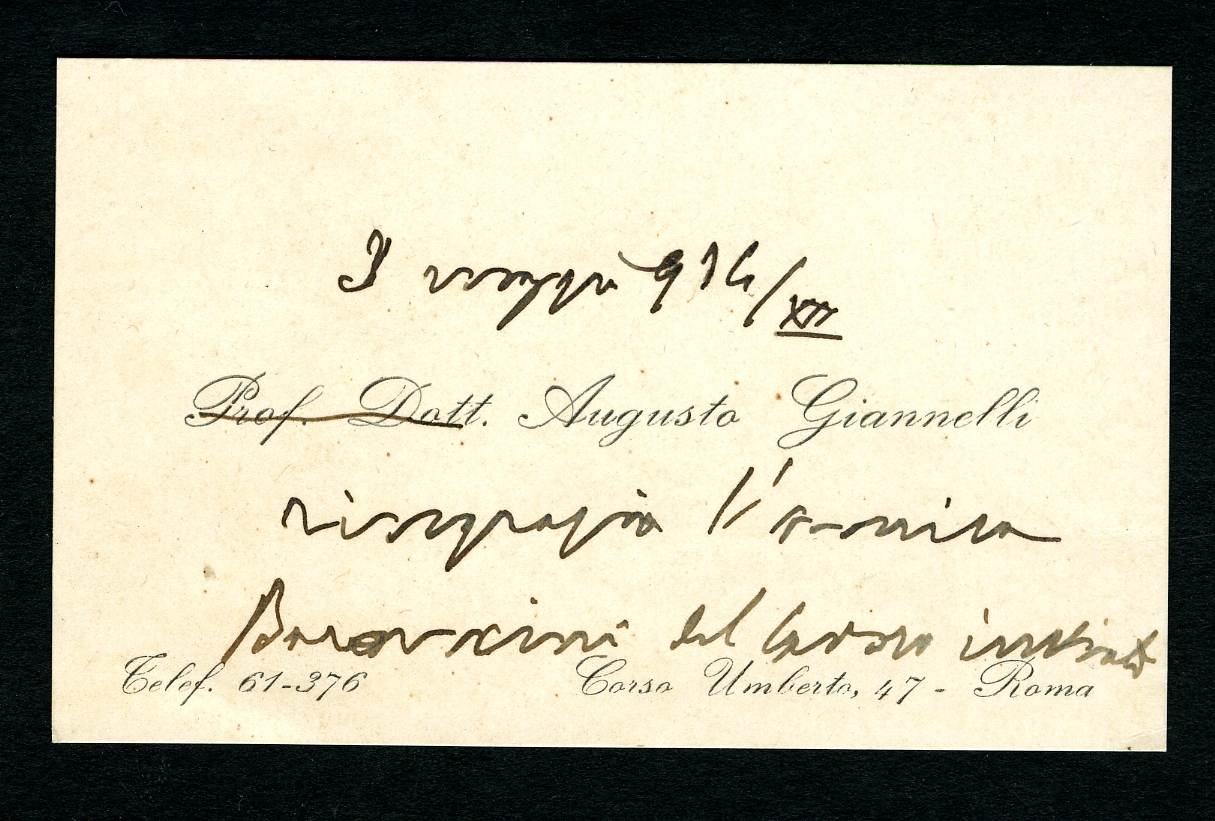 maggio 934/XII
Prof. Dott. Augusto Giannelli
ringrazia l'amico
del lavoro inviato
Telef. 61-376
Corso Umberto, 47 - Roma